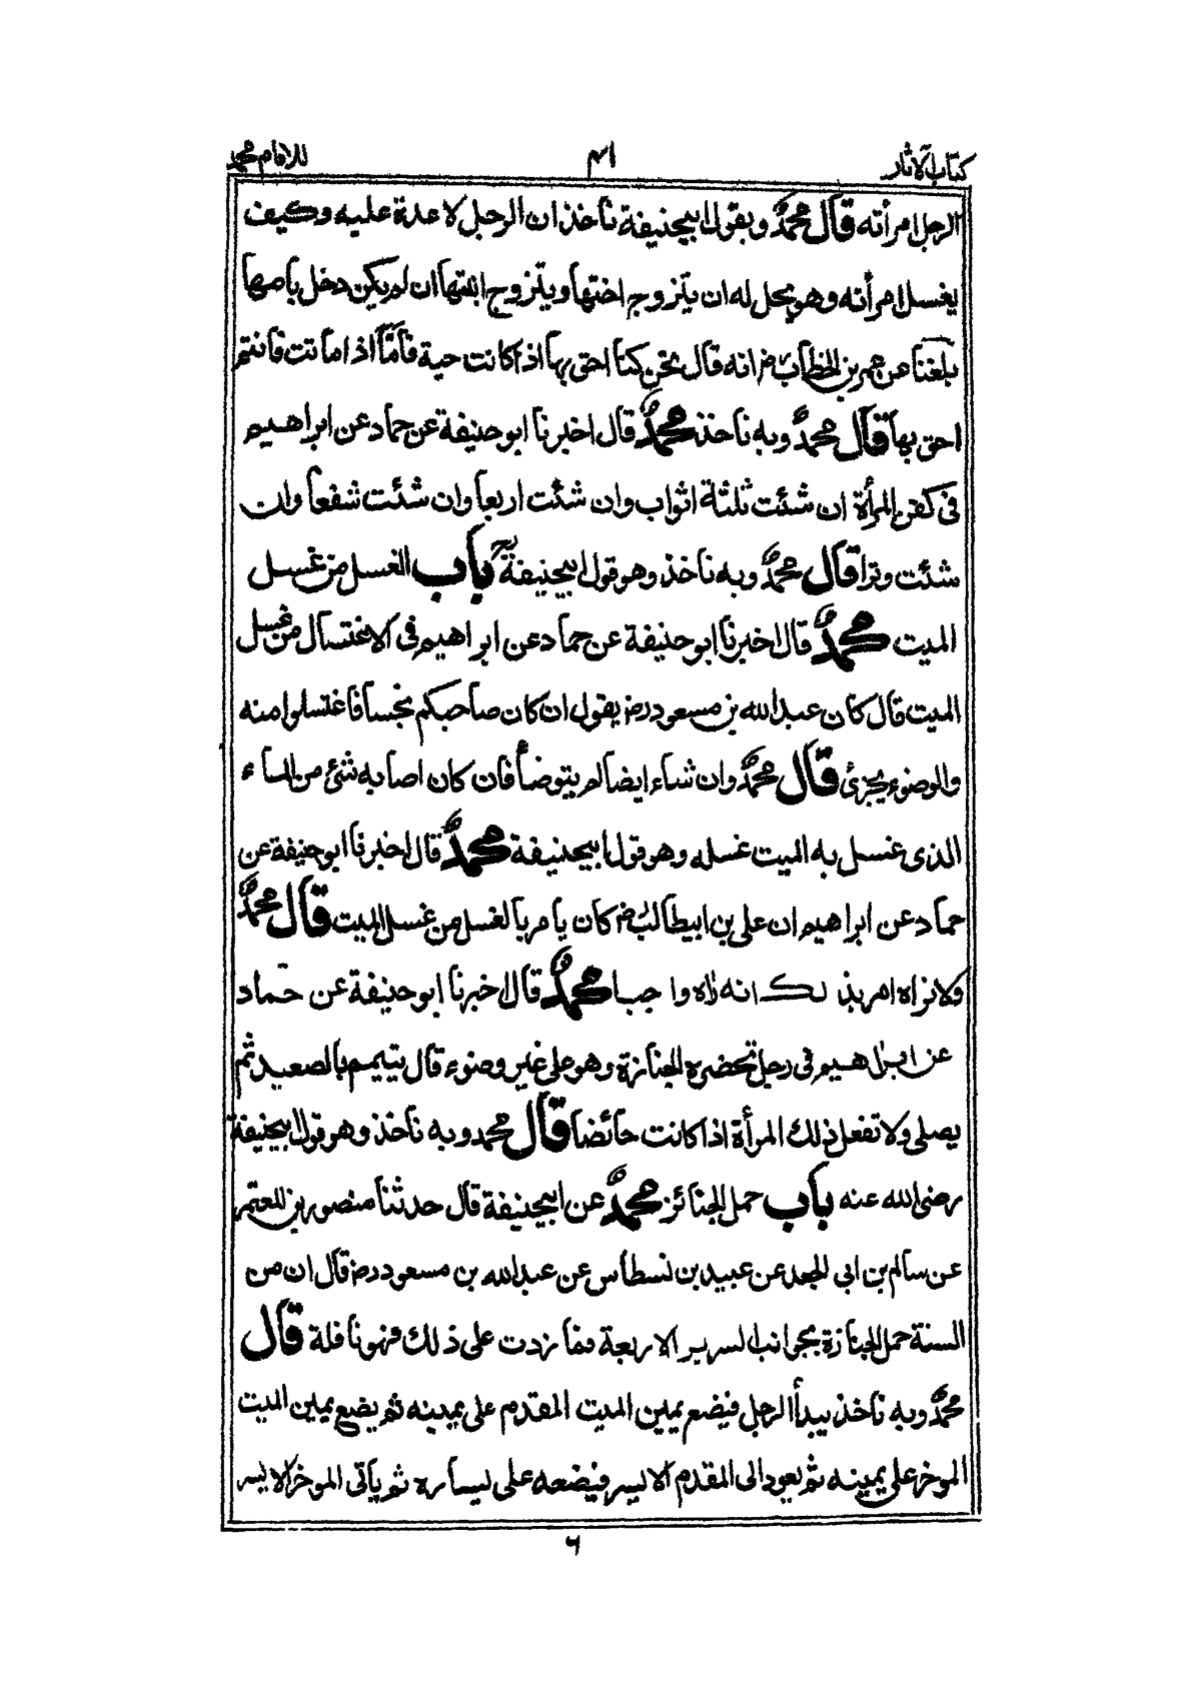 كتاب الاثار
٤١
للامام محمد
الرجل امرأته قال محمد وبقول ابيحنيفة ناخذ ان الرجل لا عدة عليه وكيف
يغسل امرأته وهو يحل له ان يتزوج اختها ويتزوج ابنتها ان لم يكن دخل بامها
بلغنا عن عمر بن الخطاب رض انه قال نحن كنا احق بها اذا كانت حية فأمّا اذا ماتت فانتم
احق بها قال محمد وبه ناخذ محمد قال اخبرنا ابو حنيفة عن حماد عن ابراهيم
فى كفن المرأة ان شئت ثلثة اثواب وان شئت اربعا وان شئت شفعا وان
شئت وترا قال محمد وبه ناخذ وهو قول ابيحنيفة رح باب الغسل من غسل
الميت محمد قال اخبرنا ابو حنيفة عن حماد عن ابراهيم فى الاغتسال من غسل
الميت قال كان عبد الله بن مسعود رض يقول ان كان صاحبكم نجسا فاغتسلوا منه
والوضوء يجزئ قال محمد وان شاء ايضا لم يتوضأ فان كان اصابه شئ من الماء
الذى غسل به الميت غسله وهو قول ابيحنيفة محمد قال اخبرنا ابو حنيفة عن
حماد عن ابراهيم ان على بن ابيطالب رض كان يامر بالغسل من غسل الميت قال محمد
ولا نراه امر بذلك انه راه واجبا محمد قال اخبرنا ابو حنيفة عن حماد
عن ابراهيم فى رجل تحضره الجنازة وهو على غير وضوء قال يتيمم بالصعيد ثم
يصلى ولا تفعل ذلك المرأة اذا كانت حائضا قال محمد وبه ناخذ وهو قول ابيحنيفة
رضى الله عنه باب حمل الجنائز محمد عن ابيحنيفة قال حدثنا منصور بن المعتمر
عن سالم بن ابى الجعد عن عبيد بن نسطاس عن عبد الله بن مسعود رض قال ان من
السنة حمل الجنازة بجوانب السرير الاربعة فما زدت على ذلك فهو نافلة قال
محمد وبه ناخذ يبدأ الرجل فيضع يمين الميت المقدم على يمينه ثم يضع يمين الميت
الموخر على يمينه ثم يعود الى المقدم الايسر فيضعه على يساره ثم ياتى الموخر الايسر
٦